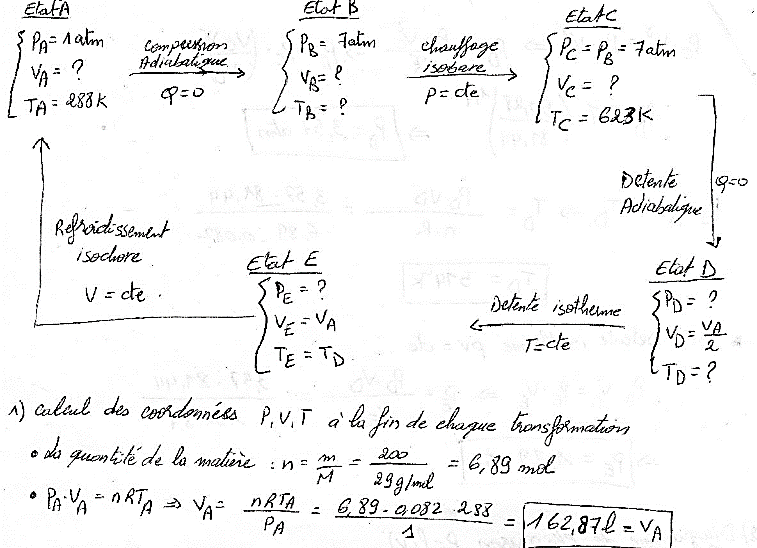 Etat A
{ P_A = 1 atm
V_A = ?
T_A = 288 K
compression
Adiabatique
Q=0
Etat B
{ P_B = 7 atm
V_B = ?
T_B = ?
chauffage
isobare
P = cte
Etat C
{ P_C = P_B = 7 atm
V_C = ?
T_C = 623 K
Detente
Adiabatique
Q=0
Etat D
{ P_D = ?
V_D = V_A/2
T_D = ?
Detente isotherme
T=cte
Etat E
{ P_E = ?
V_E = V_A
T_E = T_D
Refroidissement
isochore
V = cte.
1) calcul des coordonnées P,V,T à la fin de chaque transformation
• La quantité de la matière : n = m/M = 200/29g/mol = 6,89 mol
• P_A·V_A = nRT_A ⇒ V_A = nRT_A/P_A = 6,89·0,082·288/1 = 162,87 l = V_A